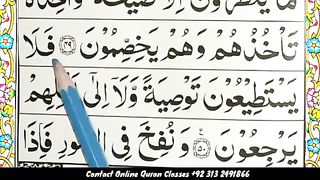 مَا يَنْظُرُوْنَ اِلَّا صَيْحَةً وَّاحِدَةً
تَاْخُذُهُمْ وَهُمْ يَخِصِّمُوْنَ ﴿۴۹﴾ فَلَا
يَسْتَطِيْعُوْنَ تَوْصِيَةً وَّلَآ اِلٰٓى اَهْلِهِمْ
يَرْجِعُوْنَ ﴿۵۰﴾ وَنُفِخَ فِى الصُّوْرِ فَاِذَا
Contact Online Quran Classes +92 313 2491866